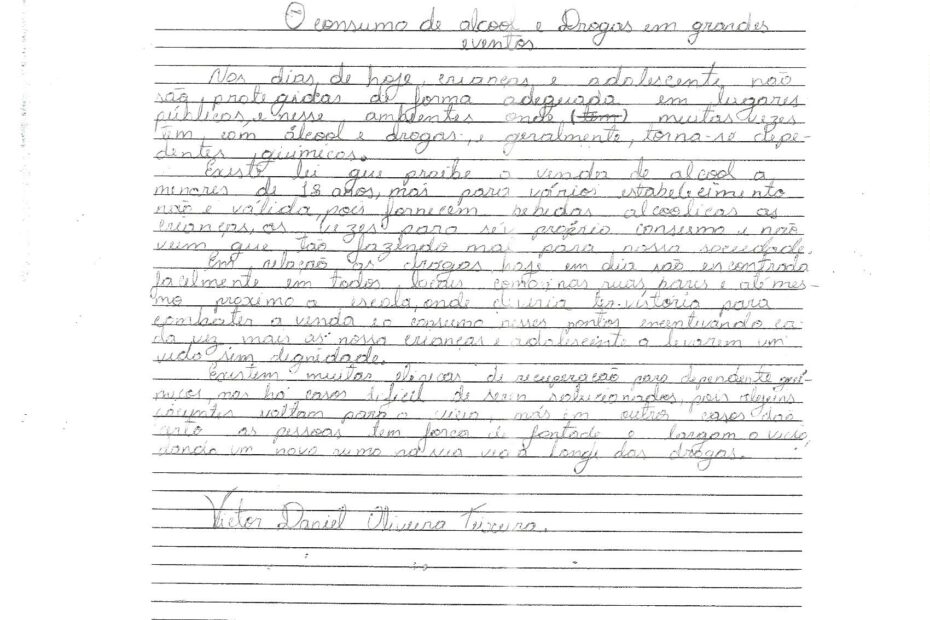 O consumo de alcool e Drogas em grandes
eventos
Nos dias de hoje, crianças e adolescente não
são protegidas de forma adequada em lugares
públicos, e nesse ambientes onde (tem) muitas vezes
têm, com álcool e drogas, e geralmente, torna-se depe-
dentes giumicos.
Existe lei que proibe o venda de alcool a
menores de 18 anos, mai para vários estabelecimento
não e válida, pois fornecem bebidas alcoolicas as
crianças, as vezes para seu próprio consumo e não
veem que tão fazendo mai para nossa sociedade.
Em relação as drogas, hoje em dia são encontrada
facilmente em todos locais como nas ruas, pares e até mes-
mo proximo a escola, onde deveria ter vistoria para
combater a venda e o consumo nesses pontos encentivando ca-
da vez mais as nossa crianças e adolescente a levarem um
vida sem dignidade.
Existem muitas clinicas de recuperação para dependente quí-
micos, mas há casos dificil de serem solucionados, pois alguns
pacientes voltam para o vicio, mas em outros casos dão
certo as pessoas tem força de fontade e largam o vicio,
dando um novo rumo na sua vida longe das drogas.
Victor Daniel Oliveira Teixeira.